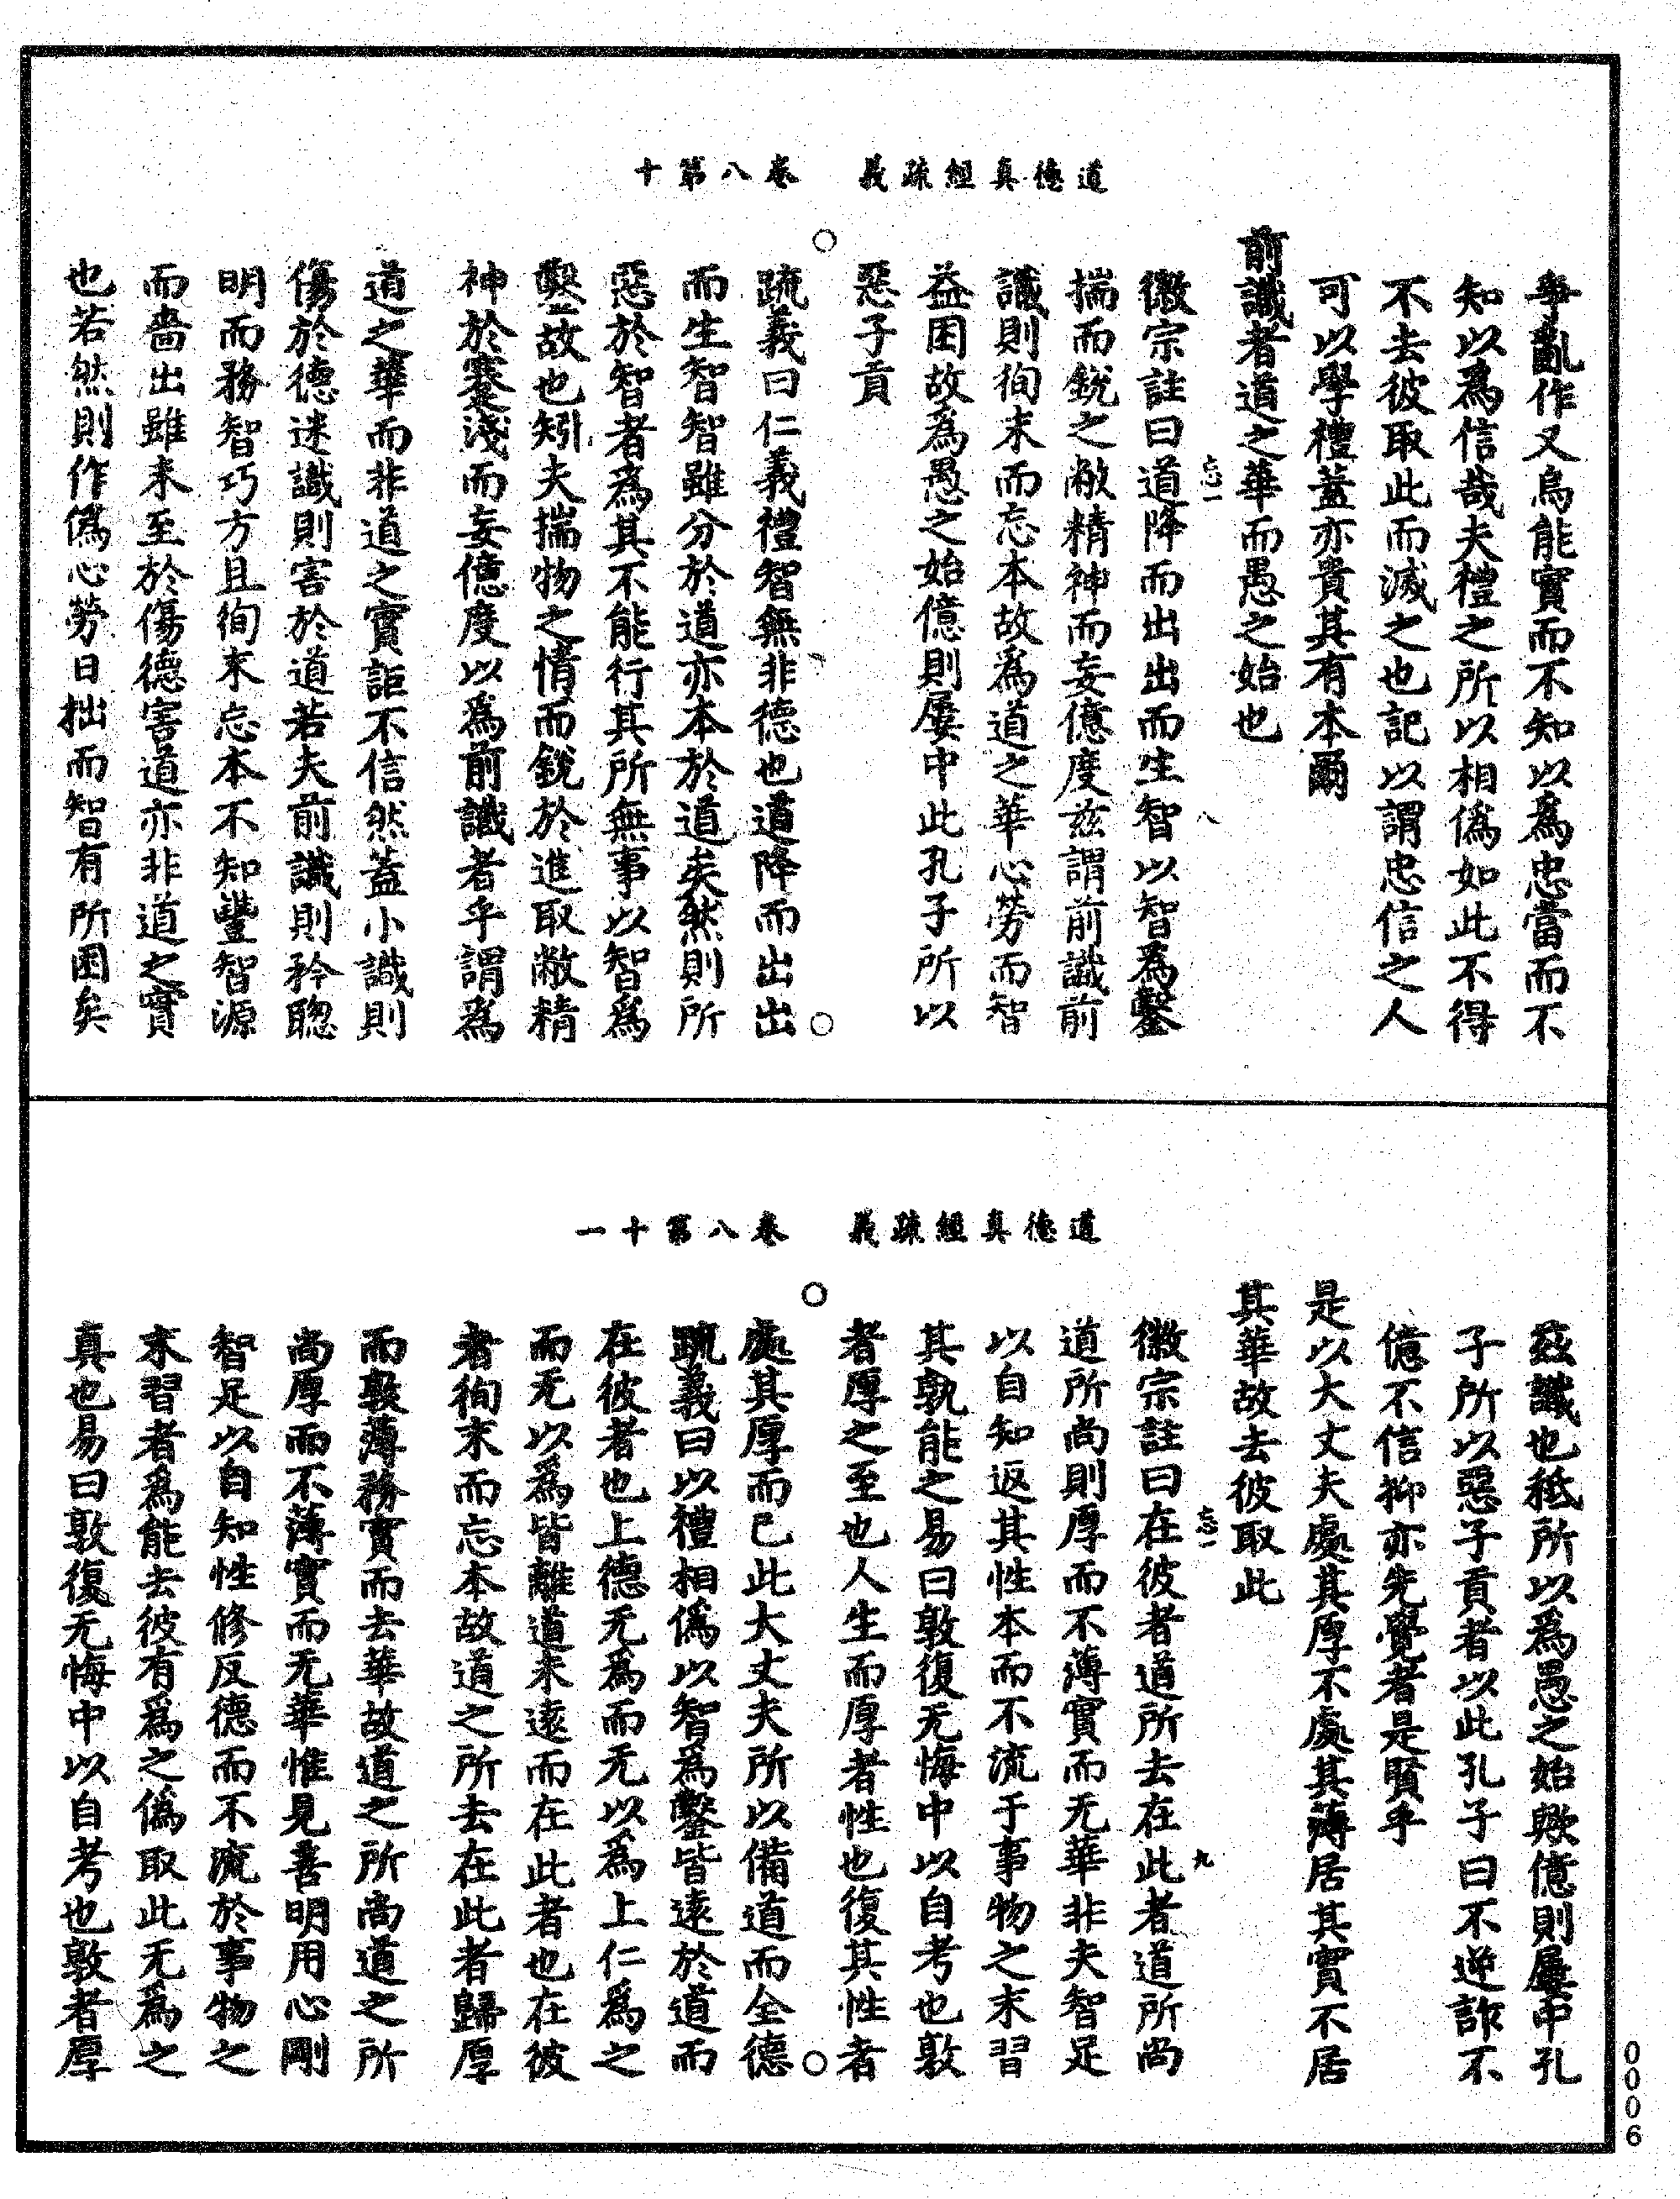 道德真經疏義　卷八第十
爭亂作又烏能實而不知以爲忠當而不
知以爲信哉夫禮之所以相偽如此不得
不去彼取此而滅之也記以謂忠信之人
可以學禮蓋亦貴其有本爾
前識者道之華而愚之始也
忘一　八
徽宗註曰道降而出出而生智以智爲鑿
揣而銳之敝精神而妄億度兹謂前識前
識則徇末而忘本故爲道之華心勞而智
益困故爲愚之始億則屢中此孔子所以
惡子貢
疏義曰仁義禮智無非德也道降而出出
而生智智雖分於道亦本於道矣然則所
惡於智者爲其不能行其所無事以智爲
鑿故也矧夫揣物之情而銳於進取敝精
神於蹇淺而妄億度以爲前識者乎謂爲
道之華而非道之實詎不信然蓋小識則
傷於德迷識則害於道若夫前識則矜聦
明而務智巧方且徇末忘本不知豐智源
而嗇出雖未至於傷德害道亦非道之實
也若然則作偽心勞日拙而智有所困矣
道德真經疏義　卷八第十一
兹識也秖所以爲愚之始歟億則屢中孔
子所以惡子貢者以此孔子曰不逆詐不
億不信抑亦先覺者是賢乎
是以大丈夫處其厚不處其薄居其實不居
其華故去彼取此
忘一　九
徽宗註曰在彼者道所去在此者道所尚
道所尚則厚而不薄實而无華非夫智足
以自知返其性本而不流于事物之末習
其孰能之易曰敦復无悔中以自考也敦
者厚之至也人生而厚者性也復其性者
處其厚而已此大丈夫所以備道而全德
疏義曰以禮相偽以智爲鑿皆遠於道而
在彼者也上德无爲而无以爲上仁爲之
而无以爲皆離道未遠而在此者也在彼
者徇末而忘本故道之所去在此者歸厚
而敦薄務實而去華故道之所尚道之所
尚厚而不薄實而无華惟見善明用心剛
智足以自知性修反德而不流於事物之
末習者爲能去彼有爲之偽取此无爲之
真也易曰敦復无悔中以自考也敦者厚
0006